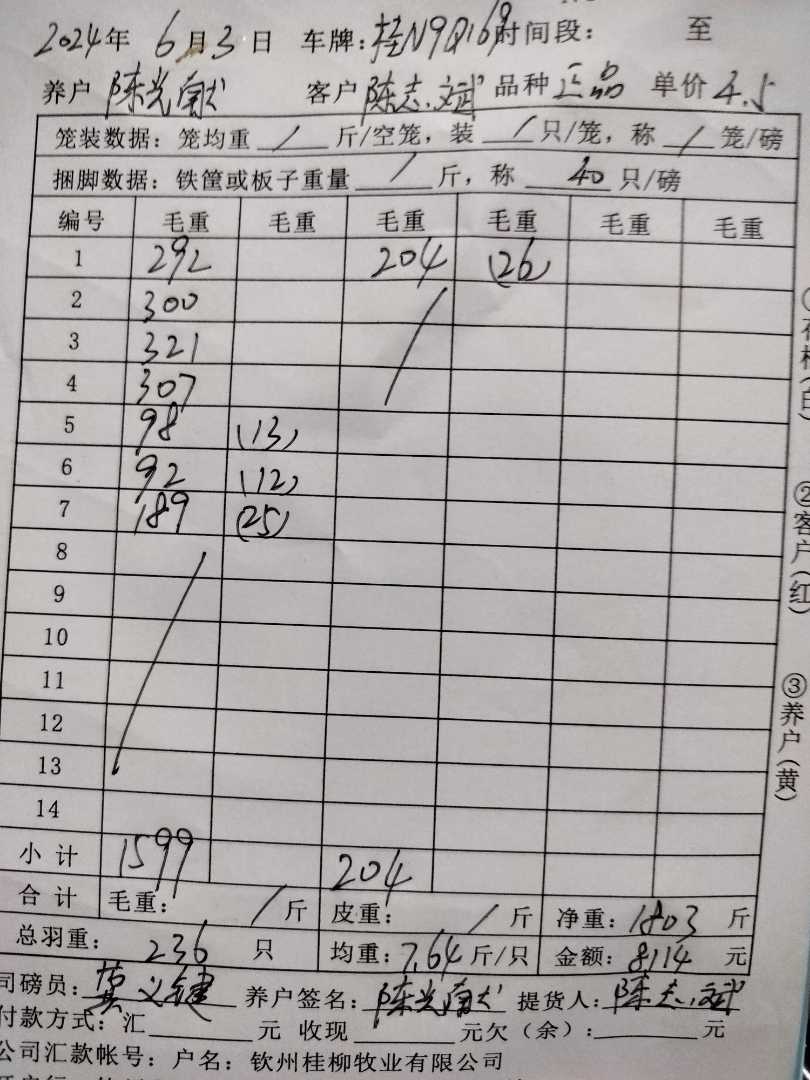 2024年 6月3日 车牌:桂N9Q169时间段: 至
养户 陈光南 客户 陈志斌 品种 正品 单价 4.5
笼装数据:笼均重 / 斤/空笼,装 / 只/笼,称 / 笼/磅
捆脚数据:铁筐或板子重量 / 斤,称 40 只/磅
编号 毛重 毛重 毛重 毛重 毛重 毛重
1 292 204 (26)
2 300
3 321
4 307
5 98 (13)
6 92 (12)
7 189 (25)
8
9
10
11
12
13
14
小计 1599 204
合计 毛重: / 斤 皮重: / 斤 净重:1803 斤
总羽重: 236 只 均重:7.64 斤/只 金额:8114 元
司磅员:莫义健 养户签名:陈光南 提货人:陈志斌
付款方式:汇 元 收现 元欠(余): 元
公司汇款帐号:户名:钦州桂柳牧业有限公司
②客户(红)
③养户(黄)